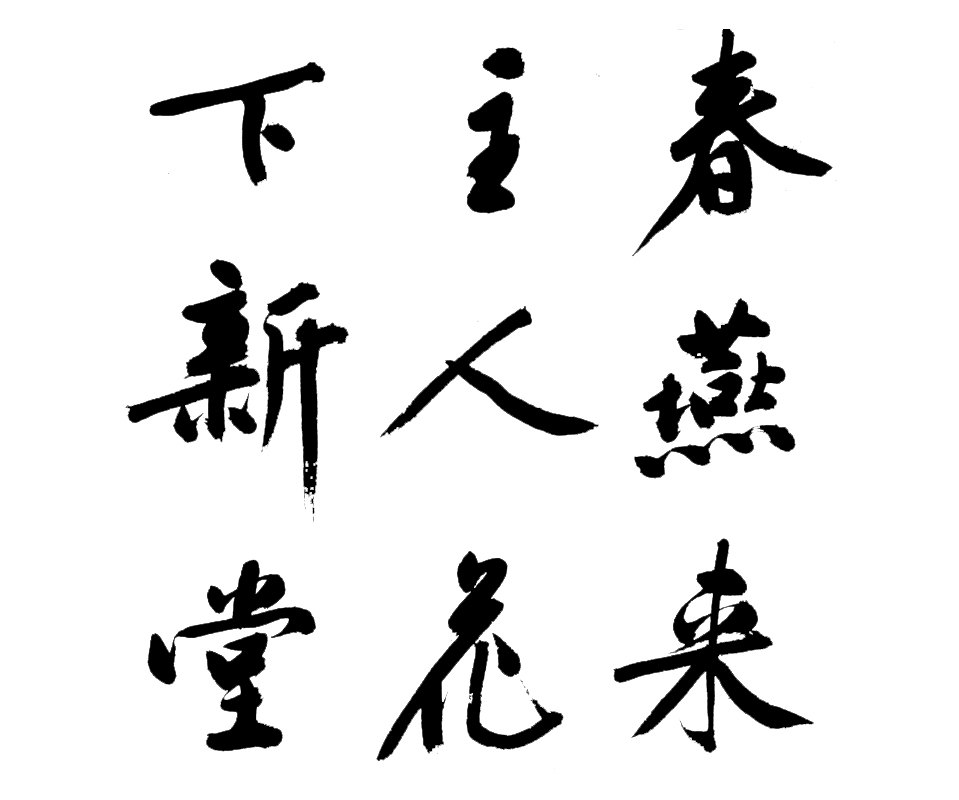 春燕来
主人花
下新堂